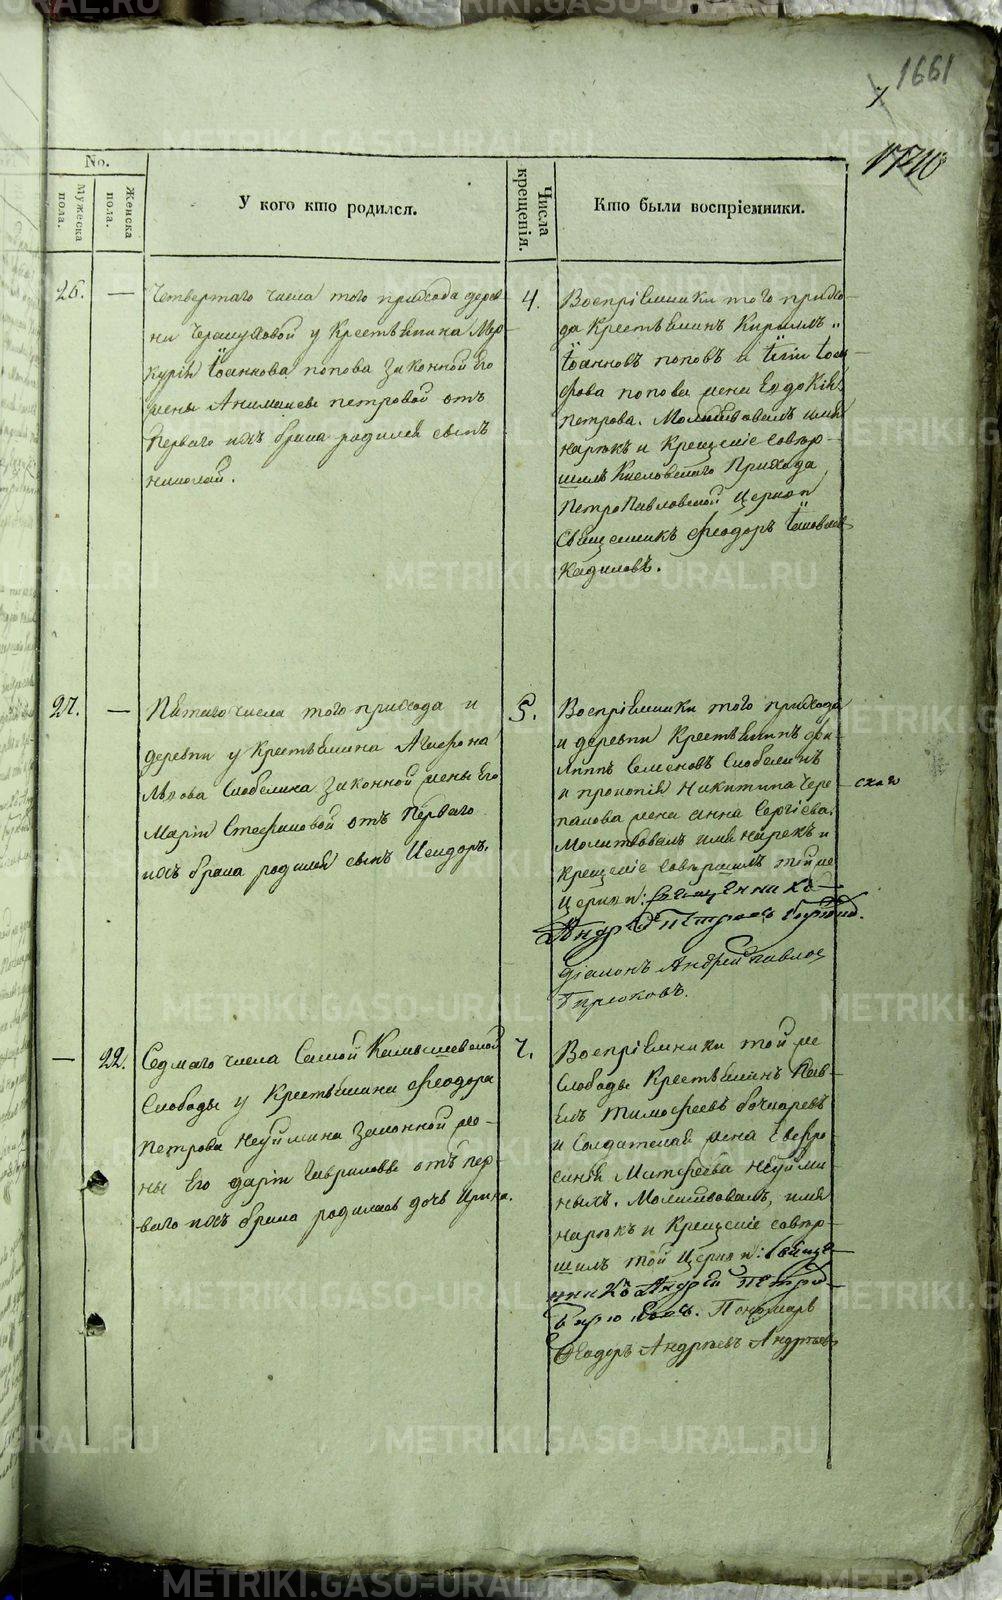 1661
7
1740
No.
Мужеска пола.
Женска пола.
У кого кто родился.
Числа крещенія.
Кто были воспріемники.
26.
—
Четвертаго числа того прихода дерев-
ни у Крестьянина Мер-
курія Іоаннова попова законной Его
жены петровой отъ
Перваго ихъ брака родился сынъ
николай.
4.
Воспріемники того прихо-
да Крестьянинъ Кириллъ
Іоанновъ поповъ и
попова жена Евдокія
петрова. Молитвовалъ имя
нарѣкъ и Крещеніе совер-
шилъ Прихода
ПетроПавловской Церкви
Священникъ Феодоръ
Кадиловъ.
27.
—
Пятаго числа того прихода и
деревни у Крестьянина
Слобелина Законной жены Его
Маріи Стефановой отъ Перваго
ихъ брака родился сынъ Исидоръ.
5.
Воспріемники того прихода
и деревни Крестьянинъ Фи-
липпъ Семеновъ Слобелинъ
и прокопія Никитина Чере-
панова жена анна Сергіева.
Молитвовалъ имя нарекъ и
Крещеніе совершилъ той же
Церкви: священникъ
Андрей Петровъ
діаконъ Андрей павловъ
Бирюковъ.
—
22.
Седмаго числа Самой Камышевской
Слободы у Крестьянина Феодора
Петрова Неуймина Законной же-
ны Его даріи Гавриловой отъ пер-
ваго ихъ брака родилась дочь Ирина.
7.
Воспріемники той же
Слободы Крестьянинъ Пав-
елъ Тимофеевъ бочкаревъ
и Солдатская жена Евфро-
синія Матфеева Неуйми-
ныхъ. Молитвовалъ, имя
нарекъ и Крещеніе совер-
шилъ той Церкви: Свяще-
нникъ Андрей Петровъ
Бирюковъ. Пономарь
Феодоръ Андреевъ Андреевъ
METRIKI.GASO-URAL.RU